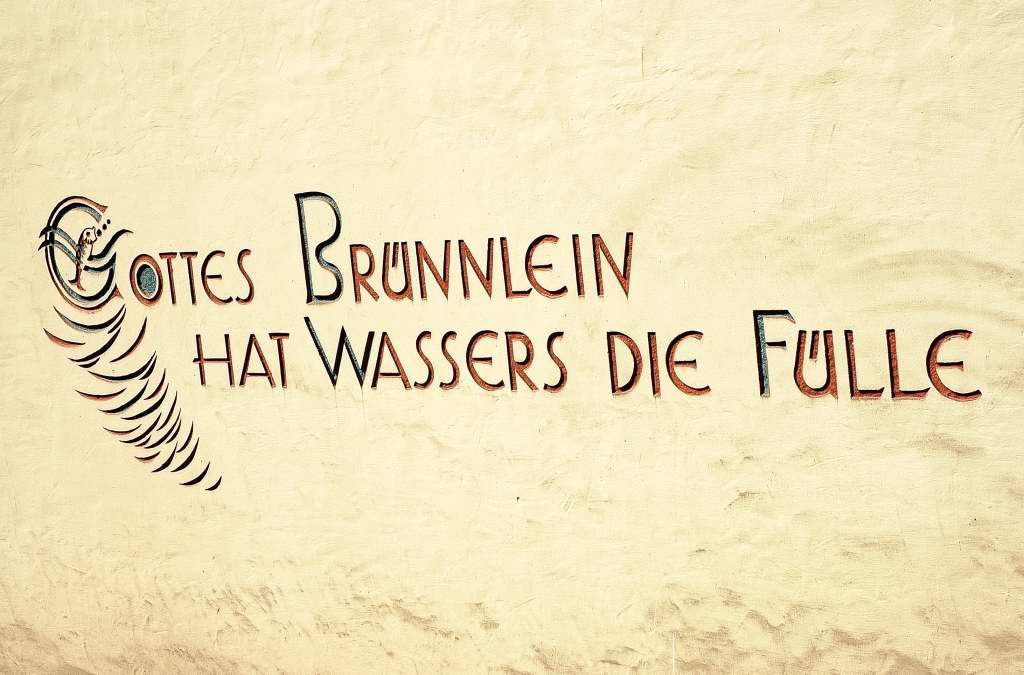 GOTTES BRÜNNLEIN
HAT WASSERS DIE FÜLLE